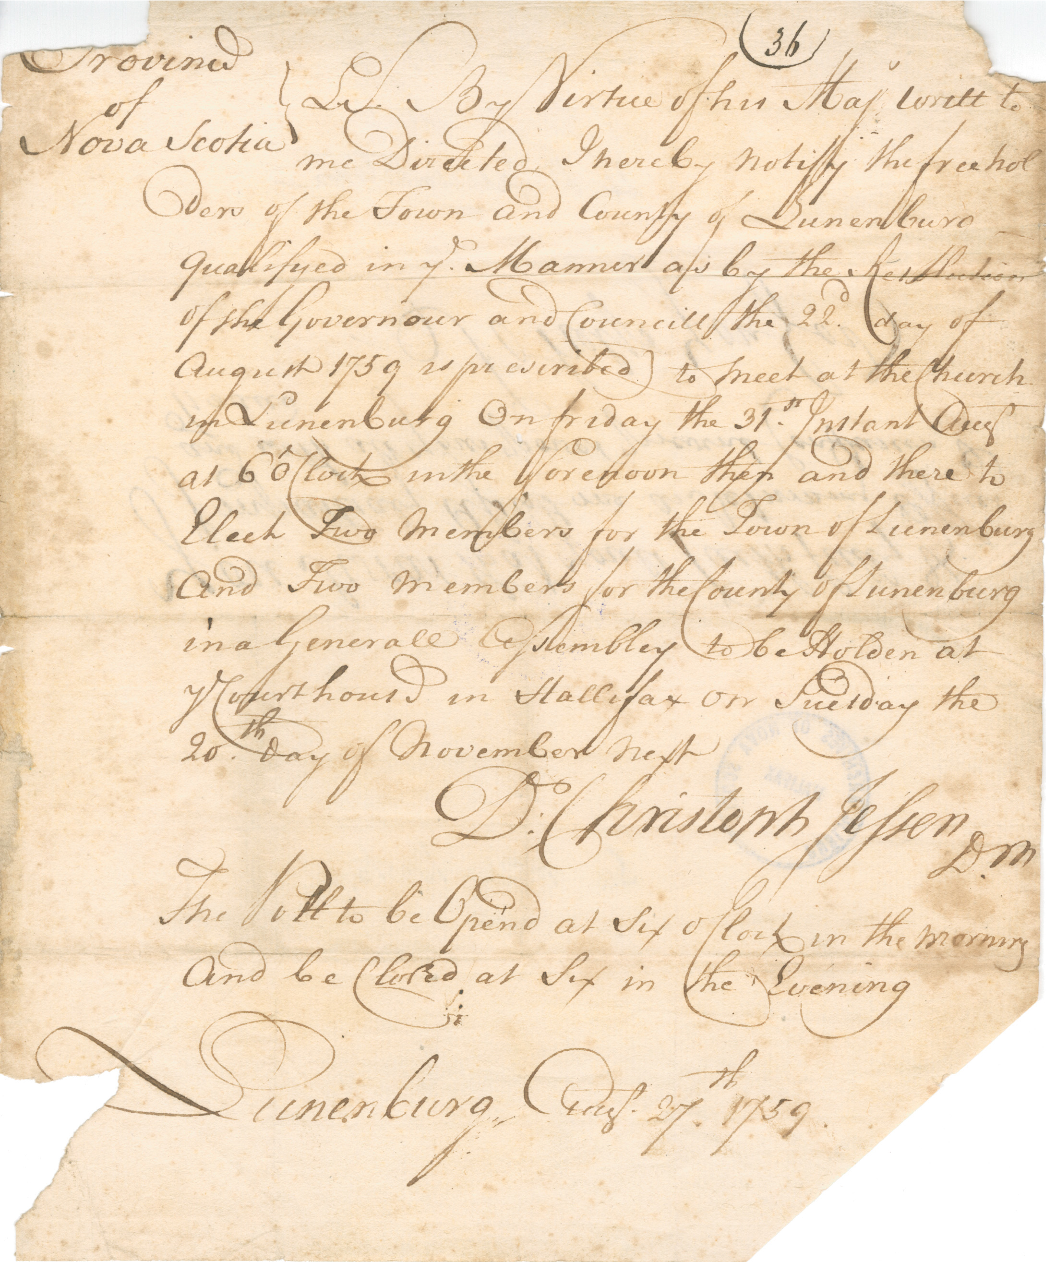 36
Province
of
Nova Scotia } LS. By Virtue of his Maj.s writt to
me Directed, I hereby notify the freehol
ders of the Town and County of Lunenburg
qualifyed in ye. Manner as by the Resolution
of the Governour and Councill the 22d. day of
August 1759 is prescribed to meet at the Church
in Lunenburg On friday the 31.st Instant Aug
at 6 o Clock in the forenoon then and there to
Elect Two Members for the Town of Lunenburg
and Two members for the County of Lunenburg
in a Generall Assembley to be Holden at
ye Courthouse in Hallifax on Tuesday the
20.th day of November next
D: Christoph Jessen
D. M
The Poll to be Opend at Six o Clock in the morning
and be Closed at Six in the Evening
Lunenburg, Aug. 27th 1759.